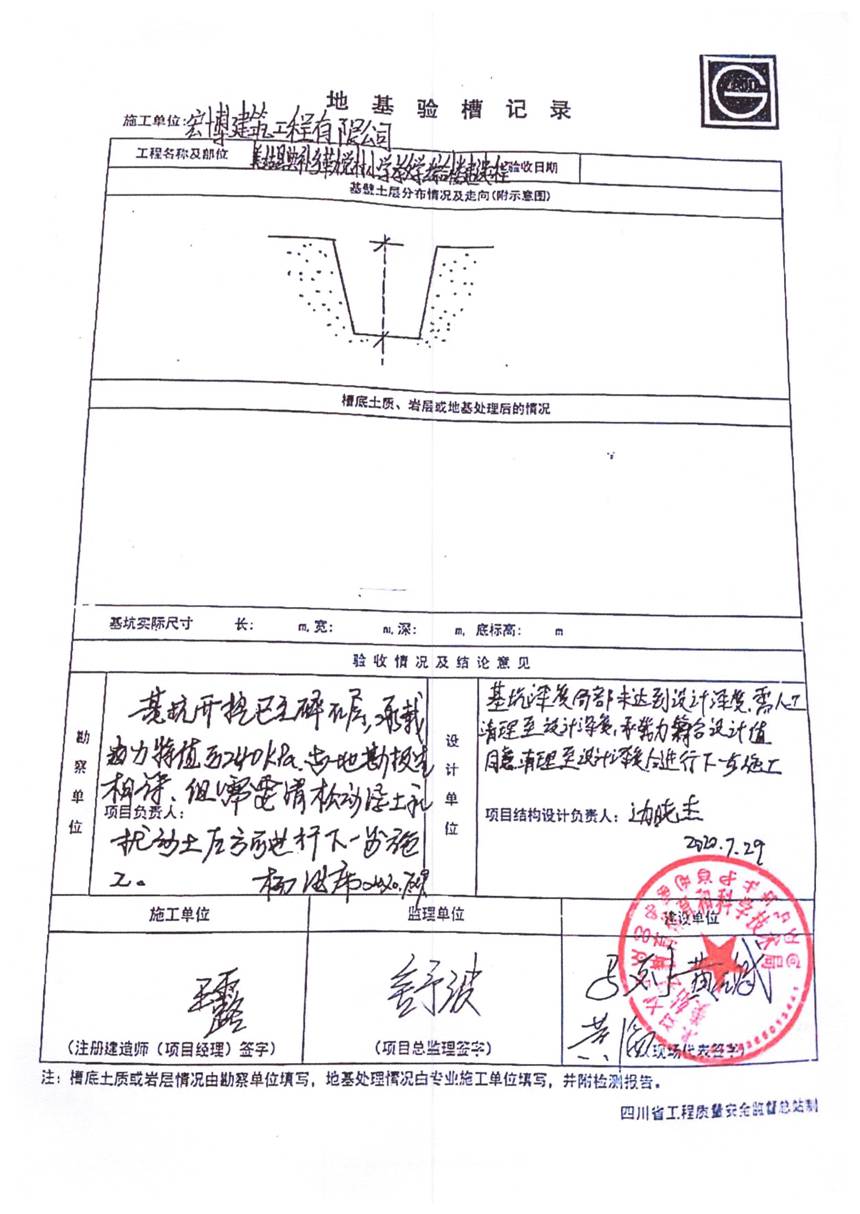 地基验槽记录
施工单位:宏博建筑工程有限公司
工程名称及部位 验收日期
基壁土层分布情况及走向(附示意图)
槽底土质、岩层或地基处理后的情况
基坑实际尺寸 长: m,宽: m,深: m, 底标高: m
验收情况及结论意见
勘察单位
基坑开挖已至碎石层,承载
力特值 240kPa,
相符,但需 清松动
项目负责人:
扰动土后方可进行下一步施
工。
设计单位
基坑深度局部未达到设计深度,需人工
清理至设计深度,承载力符合设计值
同意清理至设计深度后进行下一步施工
项目结构设计负责人: 边晓杰
2020.7.29
施工单位 监理单位 建设单位
和科学技术局
(注册建造师(项目经理)签字) (项目总监理签字) (现场代表签字)
注:槽底土质或岩层情况由勘察单位填写,地基处理情况由专业施工单位填写,并附检测报告。
四川省工程质量安全监督总站制